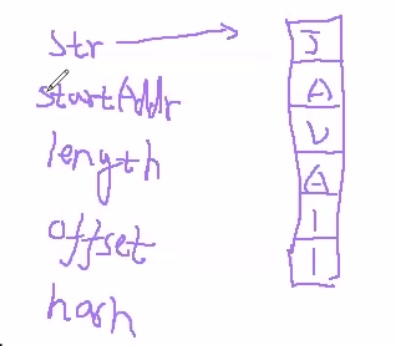 str
startAddr
length
offset
hash
J
A
V
A
1
1